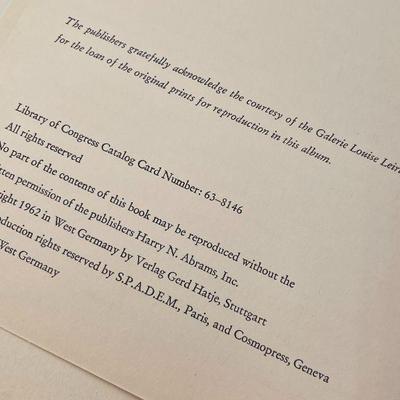 The publishers gratefully acknowledge the courtesy of the Galerie Louise
for the loan of the original prints for reproduction in this album.
Library of Congress Catalog Card Number: 63–8146
All rights reserved
No part of the contents of this book may be reproduced without the
permission of the publishers Harry N. Abrams, Inc.
1962 in West Germany by Verlag Gerd Hatje, Stuttgart
rights reserved by S.P.A.D.E.M., Paris, and Cosmopress, Geneva
West Germany